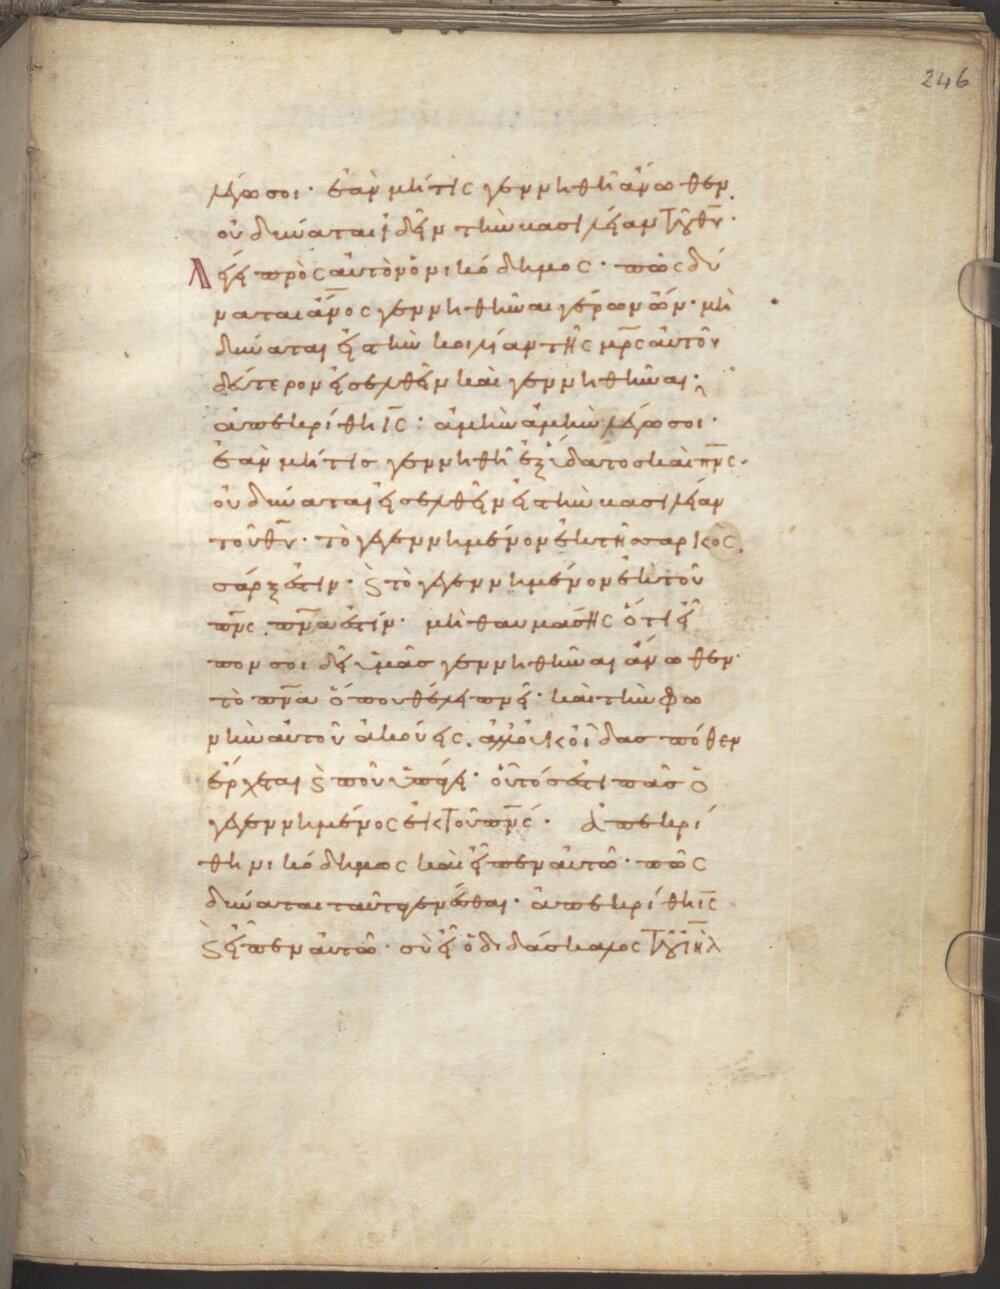 246
λέγω σοι· ἐὰν μή τις γεννηθῆ ἄνωθεν.
οὐ δύναται ἰδεῖν τὴν βασιλείαν τοῦ θ̅υ̅·
Λέγει πρὸς αὐτὸν ὁ νικόδημος· πῶς δύ
ναται ἄν̅ο̅ς γεννηθῆναι γέρων ὤν· μὴ
δύναται εἰς τὴν κοιλίαν τῆς μ̅ρ̅ς αὐτοῦ
δεύτερον εἰσελθεῖν καὶ γεννηθῆναι·
ἀπεκρίθη ι̅ς̅· ἀμὴν ἀμὴν λέγω σοι·
ἐὰν μή τισ γεννηθῆ ἐξ ὕδατοσ καὶ π̅ν̅ς·
οὐ δύναται εἰσελθεῖν εἰς τὴν βασιλείαν
τοῦ θ̅υ̅· τὸ γεγεννημένον ἐκ τῆσ σαρκὸς.
σάρξ ἐστιν· ϗ τὸ γεγεννημένον ἐκ τοῦ
π̅ν̅ς. π̅ν̅α ἐστίν· μὴ θαυμάσης ὅτι εἶ
πον σοι δεῖ ὑμᾶσ γεννηθῆναι ἄνωθεν·
τὸ π̅ν̅α ὅπου θέλει πνεῖ· καὶ τὴν φω
νὴν αὐτοῦ ἀκούεις. ἀλλ' οὐκ οἶδας πόθεν
ἔρχεται ϗ ποῦ ὑπάγει· οὕτός ἐστι πᾶσ ὁ
γεγεννημένος ἐκ τοῦ π̅ν̅ς· ἀπεκρί
θη νικόδημος καὶ εἶπεν αὐτῶ· πῶς
δύναται ταῦτα γενέσθαι· ἀπεκρίθη ι̅ς̅
ϗ εἶπεν αὐτῶ· σὺ εἶ ὁ διδάσκαλος τοῦ ι̅η̅λ